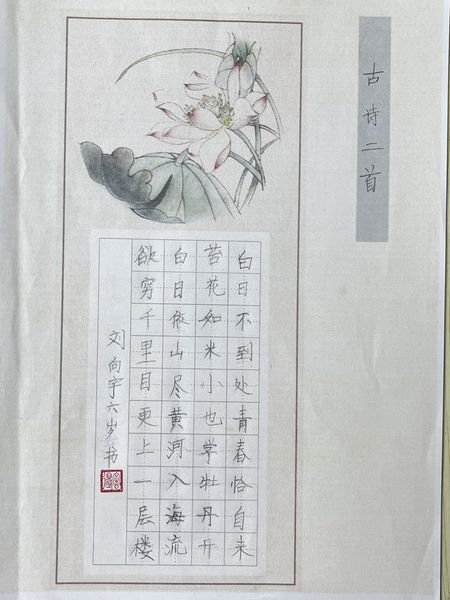 古诗二首
白日不到处青春恰自来
苔花如米小也学牡丹开
白日依山尽黄河入海流
欲穷千里目更上一层楼
刘向宇六岁书